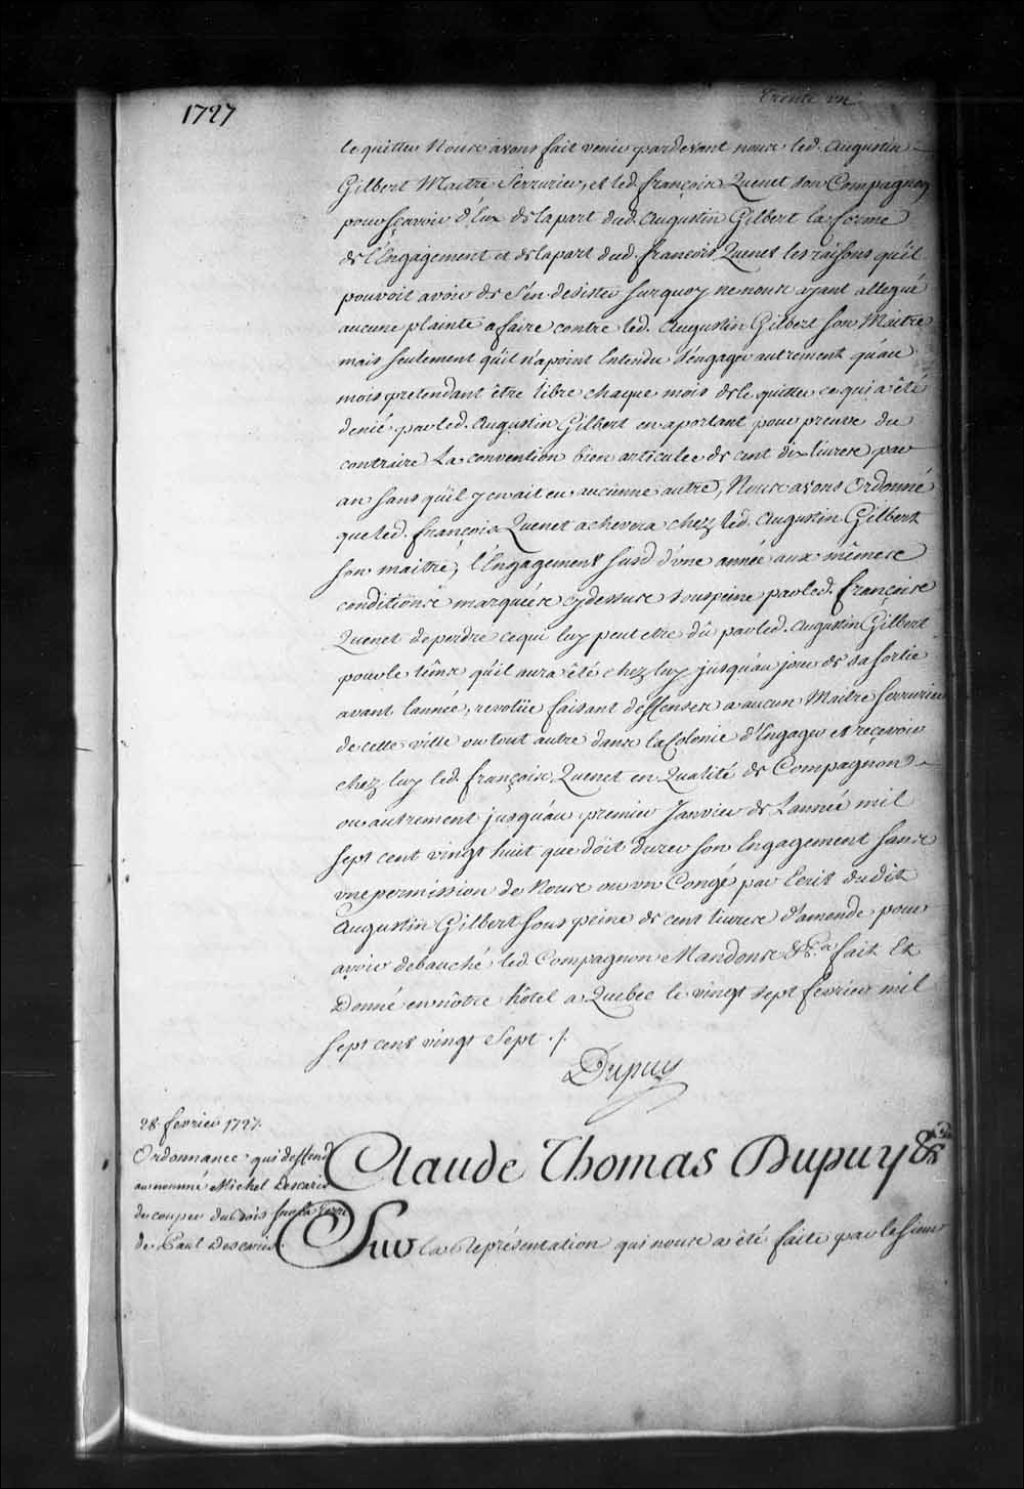 1727
trente un
le quitter Nous avons fait venir pardevant nous led. Augustin
Gilbert Maitre Serrurier, et led. françois Quenet son Compagnon
pour sçavoir d'Eux de la part dud. Augustin Gilbert la forme
de l'Engagement et de la part dud. françois Quenet les raisons qu'il
pouvoit avoir de s'en desister surquoy ne nous ayant allegué
aucune plainte a faire contre led. Augustin Gilbert son Maitre
mais seulement qu'il n'a point Entendu s'engager autrement qu'au
mois pretendant être libre chaque mois de le quitter ce qui a été
denié par led. Augustin Gilbert en aportant pour preuve du
contraire La convention bien articulée de cent dix livres par
an sans qu'il y en ait eu aucunne autre, Nous avons Ordonné
que led. françois Quenet achevera chez led. Augustin Gilbert
son maitre, l'Engagement susd. d'une année aux mêmes
conditions marquées cydessus sous peine par led. françois
Quenet de perdre ce qui luy peut etre dû par led. Augustin Gilbert
pour le têms qu'il aura êté chez luy jusqu'au jour de sa sortie
avant l'année, revolüe faisant deffenses a aucun Maitre serrurier
de cette ville ou tout autre dans la Colonie d'Engager et reçevoir
chez luy led. françois Quenet en Qualité de Compagnon
ou autrement jusqu'au premier Janvier de L'année mil
sept cent vingt huit que doit durer son Engagement sans
une permission de Nous ou un Congé par Ecrit dudit
Augustin Gilbert sous peine de cent livres d'amende pour
avoir debauché led. Compagnon Mandons &c.a fait Et
Donné en nôtre hôtel a Quebec le vingt sept fevrier mil
sept cent vingt sept ./.
Dupuy
28 fevrier 1727.
Ordonnance qui deffend
au nommé Michel Descaris
de couper du bois sur la terre
de Paul Descaris
Claude Thomas Dupuy &ca
Sur la Représentation qui nous a été faite par le sieur